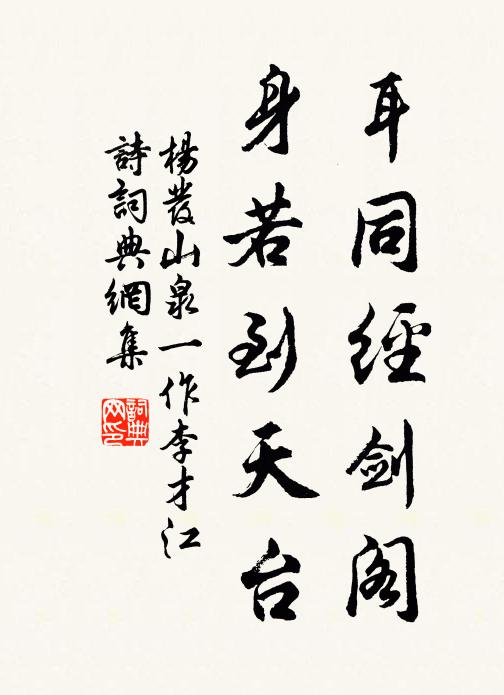 耳同經剑阁
身若到天台
楊發山泉一作李才江
詩詞典網集
詞典网印